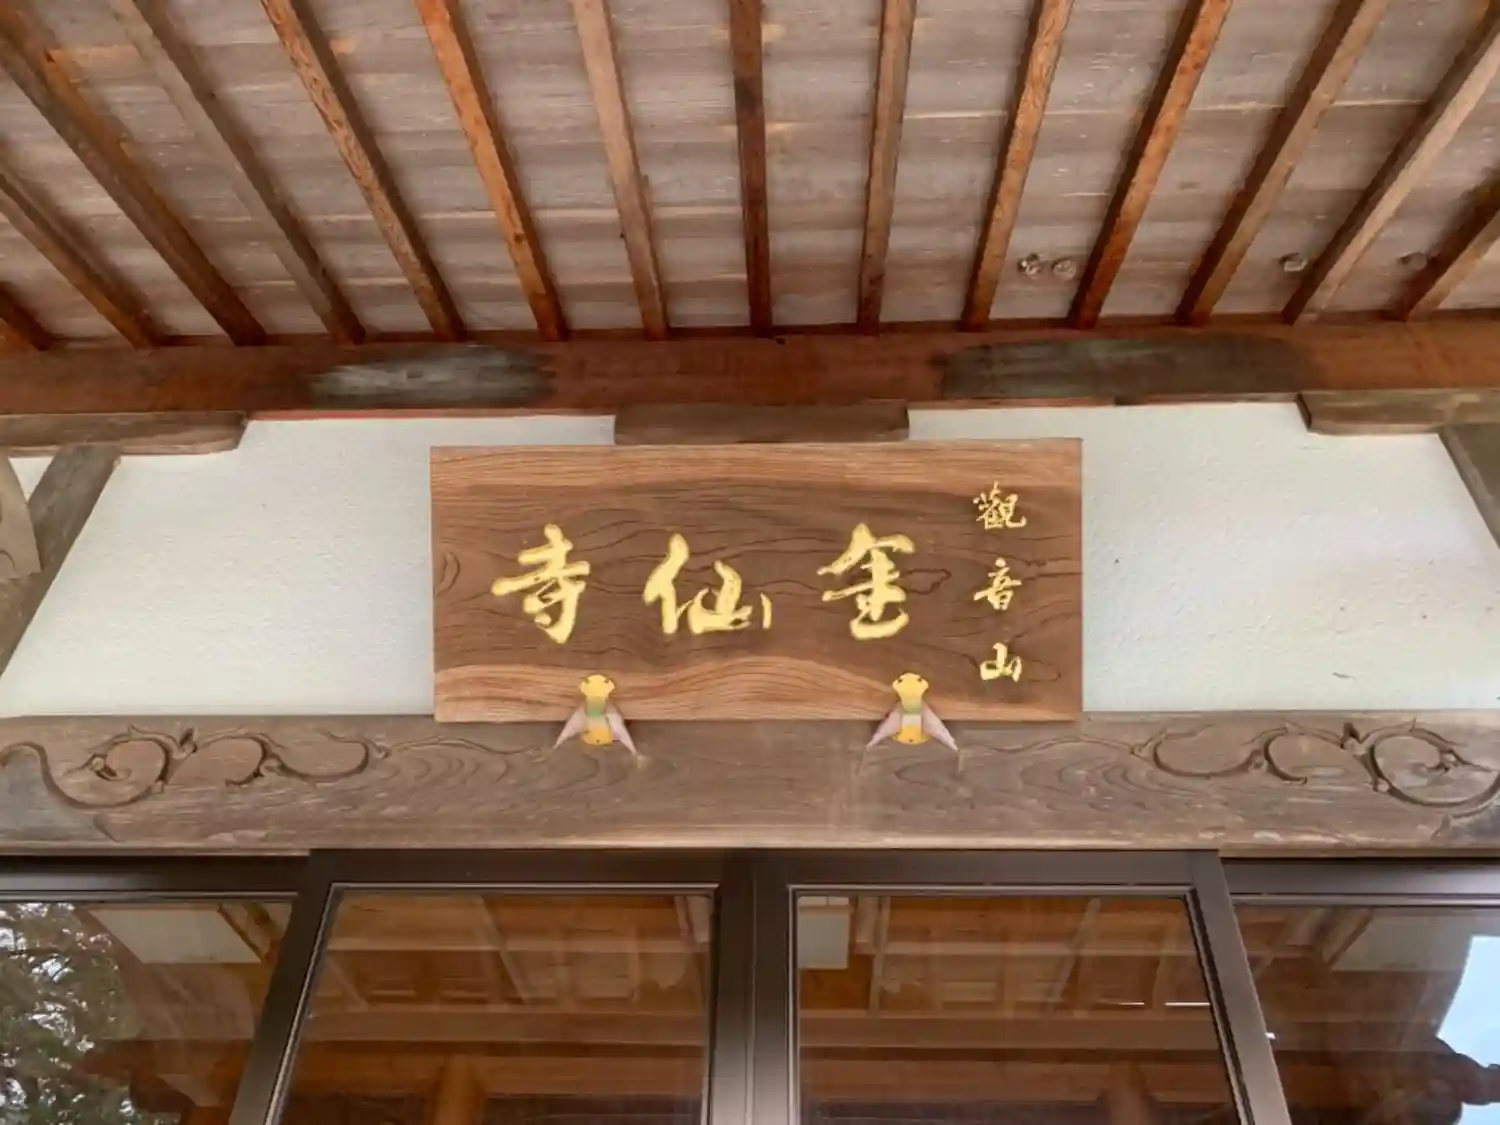 觀音山
金仙寺